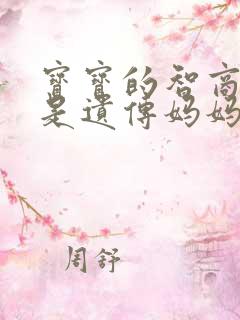 寶寶的智商
是遺傳媽媽
周舒